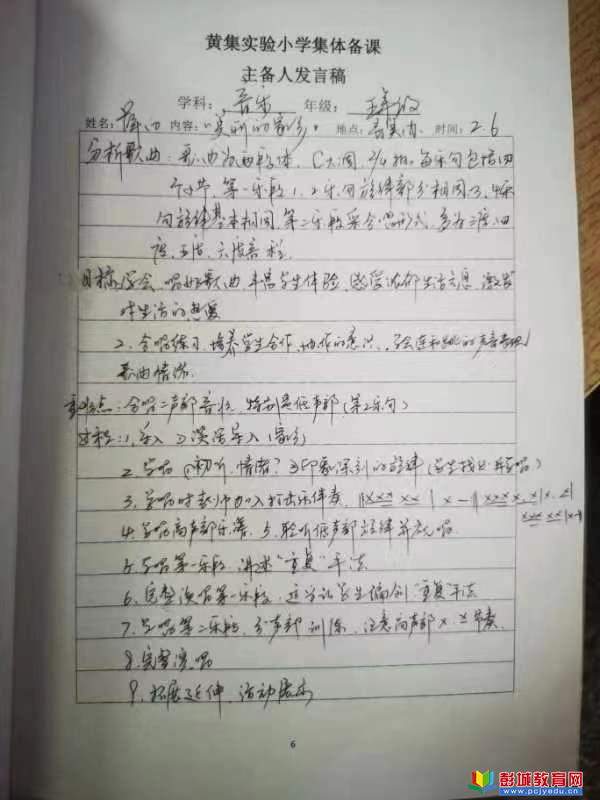 黄集实验小学集体备课
主备人发言稿
学科：音乐 年级：五年级
姓名： 内容：《美丽的家乡》 地点： 时间：2.6
分析歌曲：歌曲为两段体，C大调，2/4拍，每乐句包括四
个小节，第一乐段1、2乐句旋律部分相同，3、4乐
句旋律基本相同，第二乐段采合唱形式，多为三度、四
度、五度、六度音程
目标：学会、唱好歌曲，丰富学生体验，感受浓郁生活气息，激发
对生活的热爱
2、合唱练习，培养学生合作、协作的意识，强连和跳的声音表现
歌曲情绪
重难点：合唱二声部音准，特别是低声部（第2乐句）
过程：1、导入 谈话导入（家乡）
2、学唱 ①初听，情绪？ ②印象深刻的旋律（学生找出并学唱）
3、学唱时教师加入打击乐伴奏，
4、学唱高声部乐谱 5、聆听低声部旋律并视唱
5、学唱第一乐段，讲述“重复”手法
6、完整演唱第一乐段，适当让学生编创“重复”手法
7、学唱第二乐段，分声部训练，注意向声部X. X节奏
8、完整演唱
9、拓展延伸，活动展示
6
彭城教育网
www.pcjyedu.cn